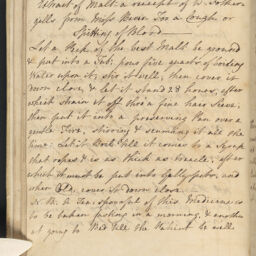 Extract of Malt a receipt of D. Fother-
gills from Miss Bevan For a Cough or
Spitting of Blood
Let a Peck of the best Malt be ground
& put into a Tub; pour five quarts of boiling
Water upon it; stir it well, then cover it
down close, & let it stand 28 hours, after
which Strain it off thro a fine hair Sieve,
then put it into a preserving Pan over a
gentle Fire, stirring & scumming it all the
time: Let it Boil till it comes to a Syrup
that ropes & is as thick as treacle, after
which it must be put into Gallypots, and
when Cold, cover it down close.
N. B. a Tea: spoonful of this Medicine is
to be taken fasting in a morning, & another
at going to Bed till the Patient be well